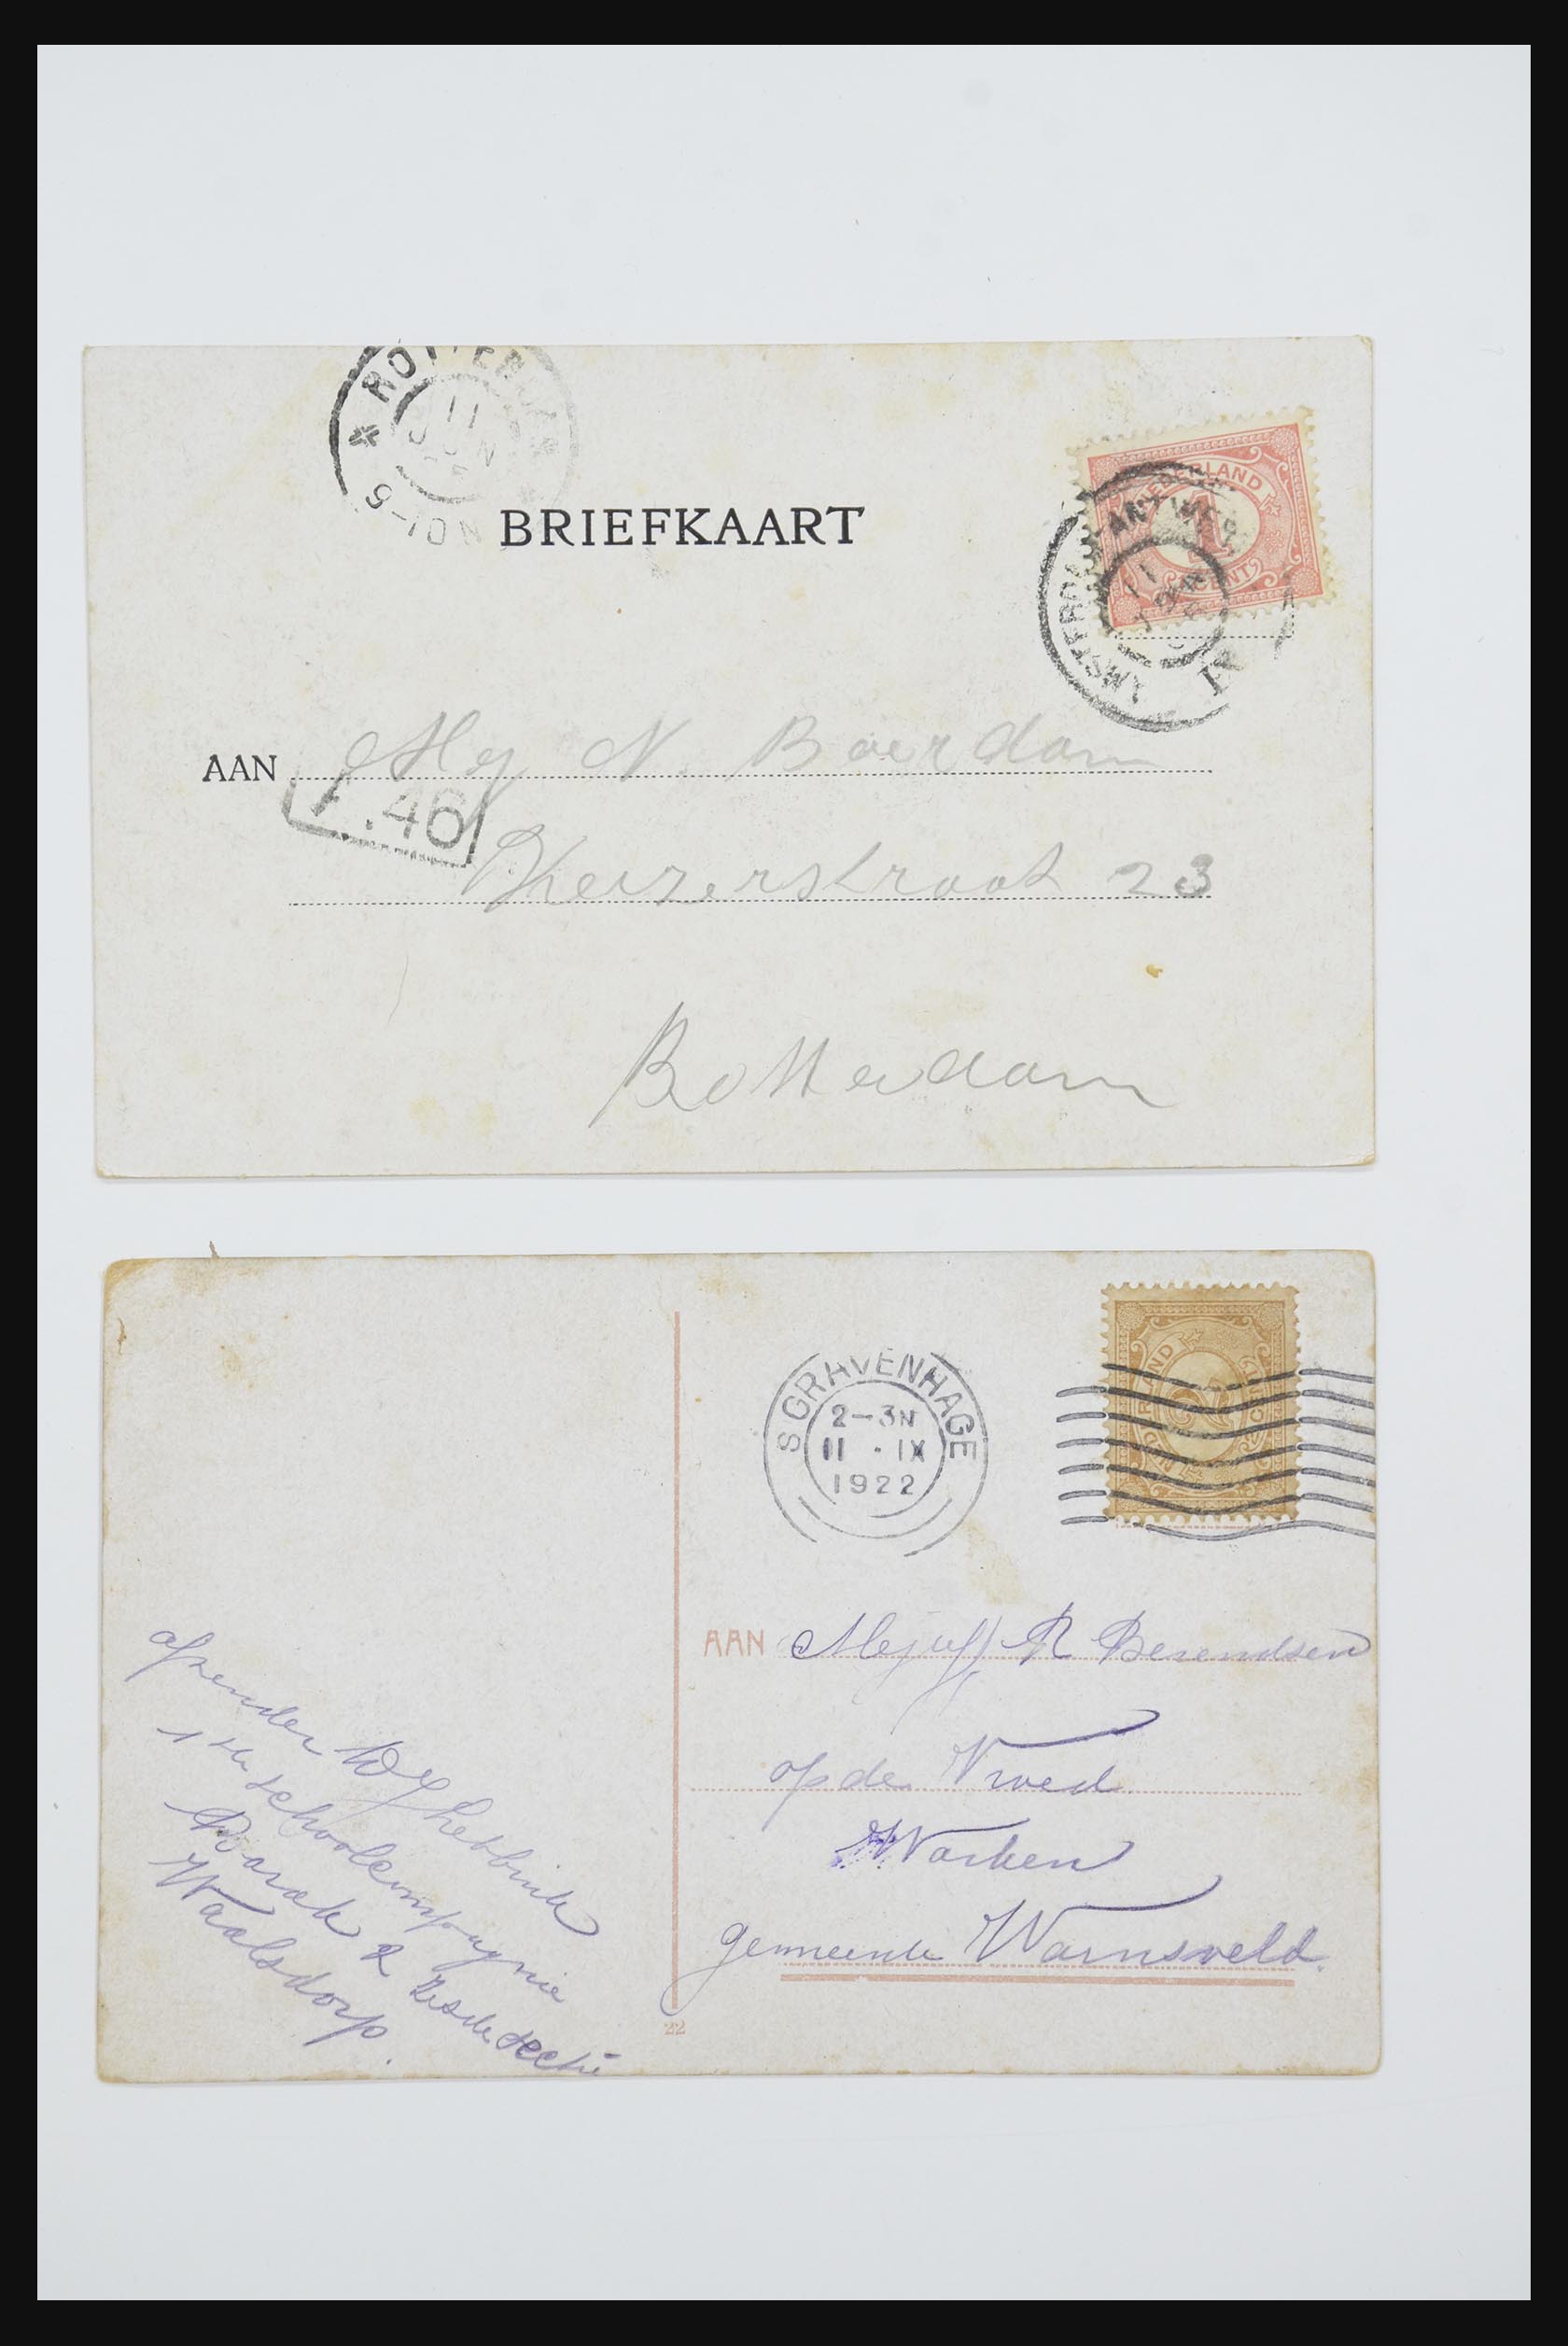 ROTTERDAM
11
JUN
5-10N
BRIEFKAART
NEDERLAND
1
CENT
AMSTERDAM-ANTWERP
11
IV
AAN Mej N. Boerdam
.46
Keizerstraat 23
Rotterdam
S GRAVENHAGE
2-3N
11 · IX
1922
CENT
AAN Mejuff R Berendsen
op de Vroed
Warken
gemeente Warnsveld.
afzender W
1ste schoolcompagnie
Barak R 2de sectie
Waalsdorp.
22